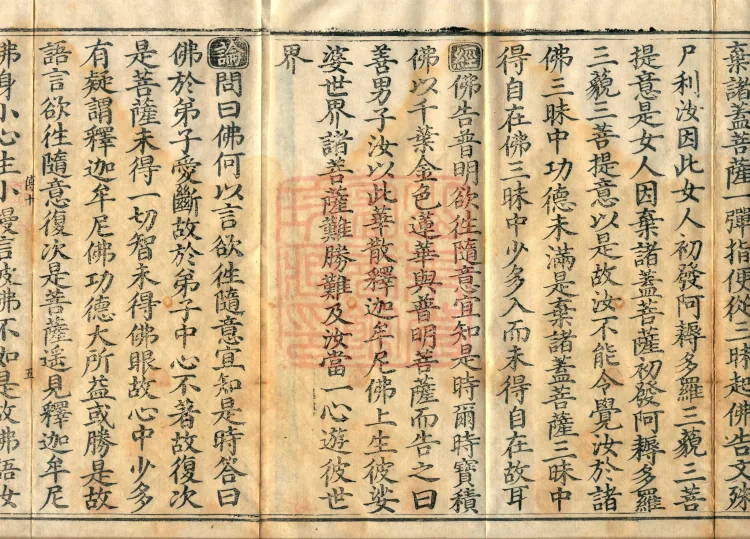 棄諸蓋菩薩一彈指便從三昧起佛告文殊
尸利汝因此女人初發阿耨多羅三藐三菩
提意是女人因棄諸蓋菩薩初發阿耨多羅
三藐三菩提意以是故汝不能令覺汝於諸
佛三昧中功德未滿是棄諸蓋菩薩三昧中
得自在佛三昧中少多入而未得自在故耳
經佛告普明欲徃隨意宜知是時爾時寶積
佛以千葉金色蓮華與普明菩薩而告之曰
善男子汝以此華散釋迦牟尼佛上生彼娑
婆世界諸菩薩難勝難及汝當一心遊彼世
界
論問曰佛何以言欲徃隨意宜知是時答曰
佛於弟子愛斷故於弟子中心不著故復次
是菩薩未得一切智未得佛眼故心中少多
有疑謂釋迦牟尼佛功德大所益或勝是故
語言欲徃隨意復次是菩薩遥見釋迦牟尼
十 五
佛身小心生小慢言彼佛不如是故佛語汝